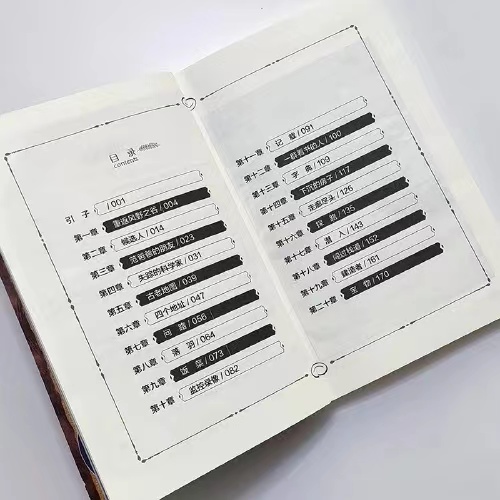 目录
contents
引子 /001
第一章 重造风野之名 / 004
第二章 候选人 / 014
第三章 范哥雅的朋友 / 023
第四章 失踪的科学家 / 031
第五章 古老地图 / 039
第六章 四个地址 / 047
第七章 问路 / 056
第八章 落羽 / 064
第九章 饭菜 / 073
第十章 监控录像 / 082
第十一章 记载 / 091
第十二章 一群看书的人 / 100
第十三章 字典 / 109
第十四章 下沉的房子 / 117
第十五章 走廊尽头 / 126
第十六章 / 135
第十七章 潜入 / 143
第十八章 / 152
第十九章 建造者 / 161
第二十章 宝物 / 170